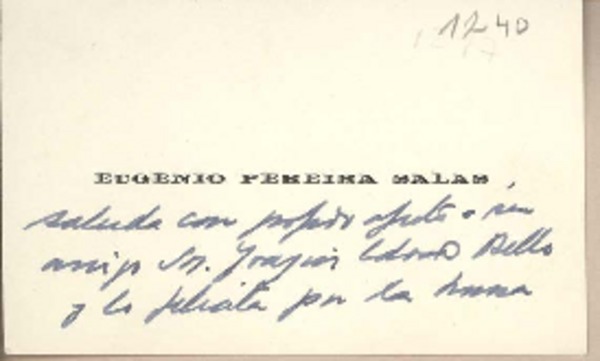 1240
EUGENIO PEREIRA SALAS
saluda con profundo afecto a su
amigo Sr. Joaquín Edwards Bello
y lo felicita por la